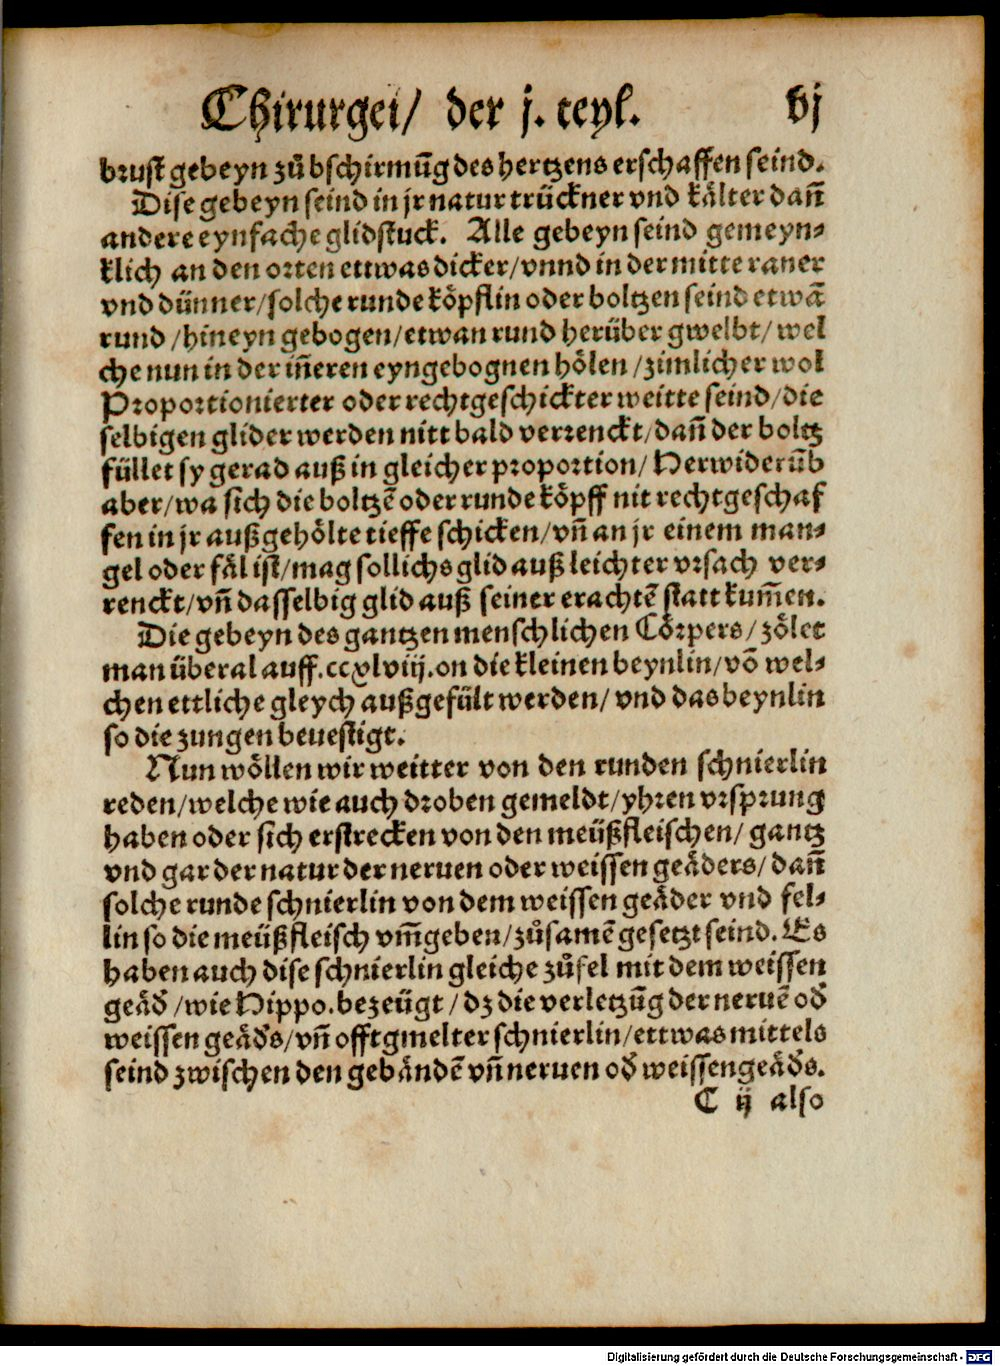 Chirurgei/ der j. teyl. vj
brust gebeyn zů bschirmūg des hertzens erschaffen seind.
Dise gebeyn seind in jr natur trückner vnd kälter dañ
andere eynfache glidstuck. Alle gebeyn seind gemeyn⸗
klich an den orten ettwas dicker/vnnd in der mitte raner
vnd dünner/solche runde köpflin oder boltzen seind etwā
rund/hineyn gebogen/etwan rund herüber gwelbt/wel
che nun in der iñeren eyngebognen hölen/zimlicher wol
Proportionierter oder rechtgeschickter weitte seind/die
selbigen glider werden nitt bald verrenckt/dañ der boltz
füllet sy gerad auß in gleicher proportion/Herwiderūb
aber/wa sich die boltzē oder runde köpff nit rechtgeschaf
fen in jr außgehölte tieffe schicken/vñ an jr einem man⸗
gel oder fäl ist/mag sollichs glid auß leichter vrsach ver⸗
renckt/vñ dasselbig glid auß seiner erachtē statt kum̄en.
Die gebeyn des gantzen menschlichen Cörpers/zölet
man überal auff.ccxlviij.on die kleinen beynlin/vō wel⸗
chen ettliche gleych außgefült werden/vnd das beynlin
so die zungen beuestigt.
Nun wöllen wir weitter von den runden schnierlin
reden/welche wie auch droben gemeldt/yhren vrsprung
haben oder sich erstrecken von den meüßfleischen/gantz
vnd gar der natur der neruen oder weissen geäders/dañ
solche runde schnierlin von dem weissen geäder vnd fel⸗
lin so die meüßfleisch vm̄geben/zůsamē gesetzt seind. Es
haben auch dise schnierlin gleiche zůfel mit dem weissen
geäd̕/wie Hippo.bezeügt/dz die verletzūg der neruē od̕
weissen geäd̕s/vñ offtgmelter schnierlin/ettwas mittels
seind zwischen den gebändē vñ neruen od̕ weissengeäd̕s.
C ij also
Digitalisierung gefördert durch die Deutsche Forschungsgemeinschaft - DFG